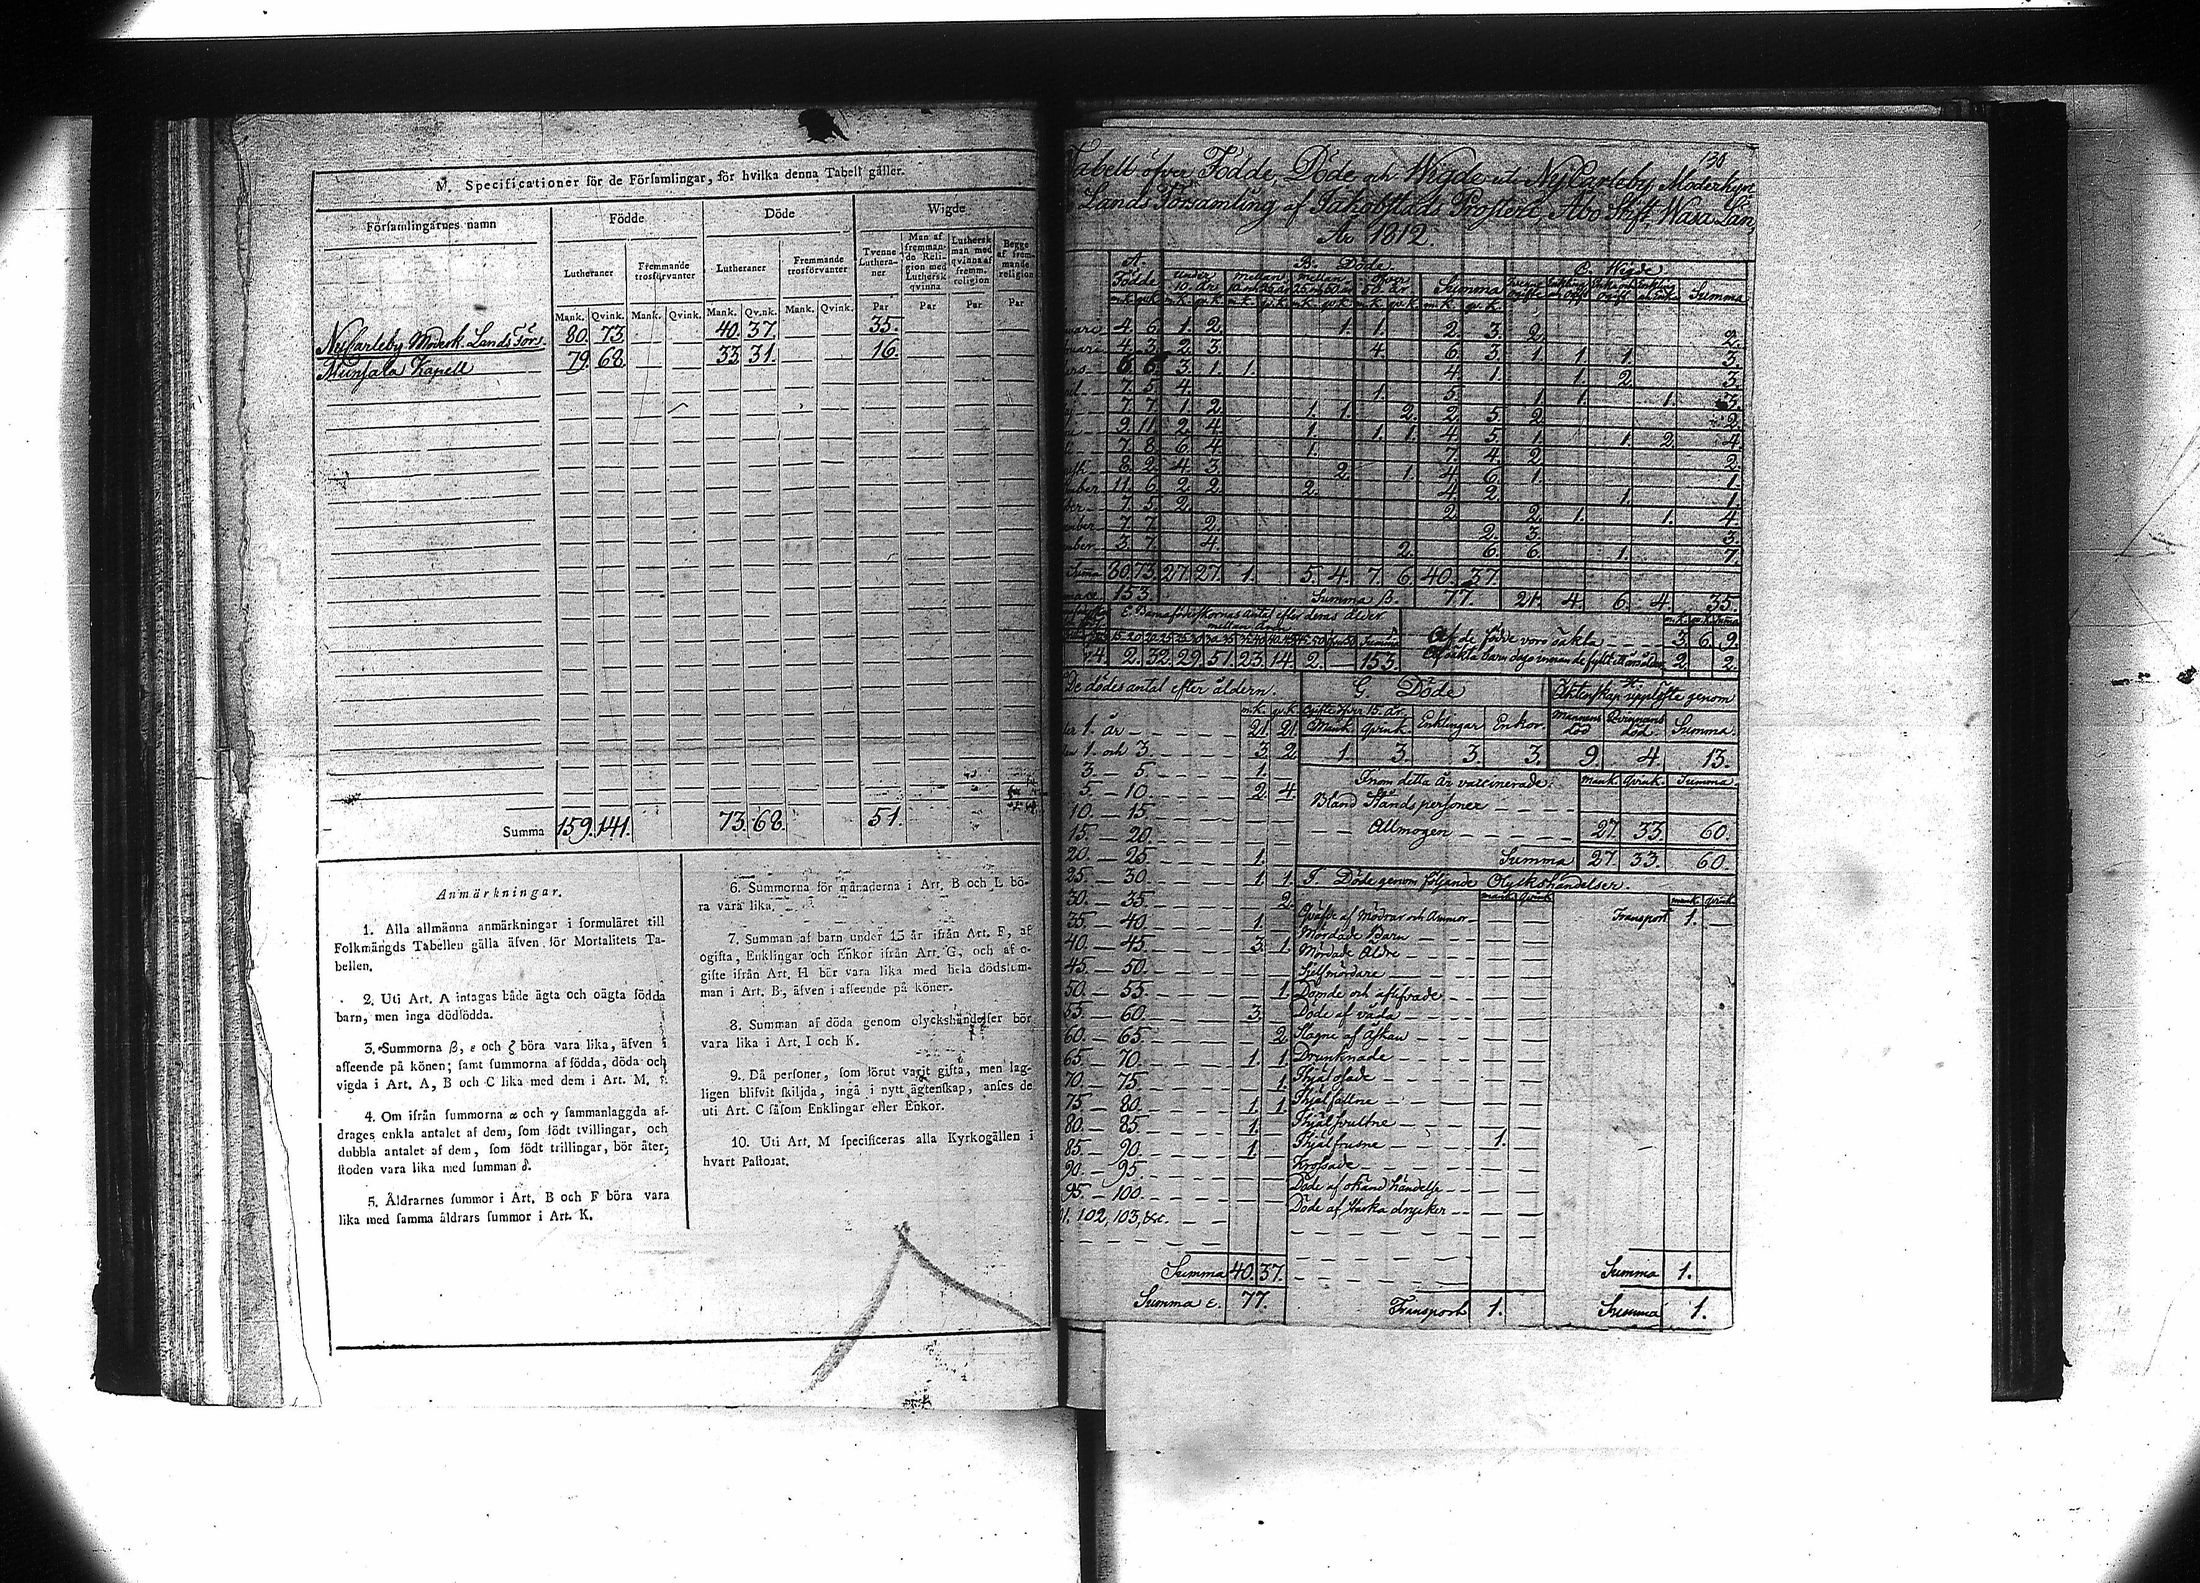 M. Specificationer för de Församlingar, för hvilka denna Tabell gäller.
Församlingarnes namn Födde Döde Wigde
Lutheraner Fremmande trosförvanter Lutheraner Fremmande trosförvanter Tvenne Lutheraner Man af fremmande Religion med Luthersk qvinna Luthersk man med qvinna af fremm. religion Begge af fremmande religion
Mank. Qvink. Mank. Qvink. Mank. Qvink. Mank. Qvink. Par Par Par Par
NyCarleby Moderk. Lands Förs. 80. 73. 40. 37. 35.
Munsala Kapell 79. 68. 33. 31. 16.
Summa 159. 141. 73. 68. 51.
Anmärkningar.
1. Alla allmänna anmärkningar i formuläret till
Folkmängds Tabellen gälla äfven för Mortalitets Ta-
bellen.
2. Uti Art. A intagas både ägta och oägta födda
barn, men inga dödfödda.
3. Summorna β, ε och ζ böra vara lika, äfven i
afseende på könen; samt summorna af födda, döda och
vigda i Art. A, B och C lika med dem i Art. M.
4. Om ifrån summorna α och γ sammanlaggda af-
drages enkla antalet af dem, som födt tvillingar, och
dubbla antalet af dem, som födt trillingar, bör åter-
stoden vara lika med summan δ.
5. Åldrarnes summor i Art. B och F böra vara
lika med samma åldrars summor i Art. K.
6. Summorna för månaderna i Art. B och L bö-
ra vara lika.
7. Summan af barn under 15 år ifrån Art. F, af
ogifta, Enklingar och Enkor ifrån Art. G, och af o-
gifte ifrån Art. H bör vara lika med hela dödssum-
man i Art. B, äfven i afseende på könen.
8. Summan af döda genom olyckshändelser bör
vara lika i Art. I och K.
9. Då personer, som förut varit gifta, men lag-
ligen blifvit skiljda, ingå i nytt ägtenskap, anses de
uti Art. C såsom Enklingar eller Enkor.
10. Uti Art. M specificeras alla Kyrkogällen i
hvart Pastorat.
130
Tabell öfver Födde, Döde och Wigde uti NyCarleby Moderkyrk.
Lands Församling af Jakobstads Prosteri, Åbo Stift, Wasa Län,
År 1812.
A. Födde B. Döde C. Wigde
Under 10 år Mellan Mellan Summa Summa
4 6 1. 2. 1. 1. 2. 3. 2. 2.
4 3 2. 3. 4. 6. 3. 1. 1. 1. 3.
6 6 3. 1. 1. 4. 1. 1. 2. 3.
7. 5 4. 1. 5. 1. 1. 1. 3.
7. 7. 1. 2. 1. 1. 2. 2. 5. 2. 2.
9. 11. 2. 4. 1. 1. 1. 4. 5. 1. 1. 2. 4.
7. 8 6. 4. 1. 7. 4. 2. 2.
8. 2. 4. 3. 2. 1. 4. 6. 1. 1.
11. 6. 2. 2. 2. 4. 2. 1. 1.
7. 5. 2. 2. 2. 1. 1. 4.
7. 7. 2. 2. 3. 3.
3. 7. 4. 2. 6. 6. 1. 7.
Summa 80. 73. 27. 27. 1. 5. 4. 7. 6. 40. 37.
153. Summa β. 77. 21. 4. 6. 4. 35.
E. Barnaföderskornas antal efter deras ålder
2. 32. 29. 51. 23. 14. 2. — 153.
Af de födde voro oäkta 3 6 9.
2. 2.
De dödes antal efter åldern.
mk. qvk.
1. år 21. 21.
1. och 3. 3. 2.
3. — 5. 1.
5. — 10. 2. 4.
10. — 15.
15. — 20.
20. — 25 1.
25. — 30 1. 1.
30. — 35. 2.
35. — 40. 1.
40. — 45. 3. 1.
45. — 50.
50. — 55. 1.
55. — 60. 3.
60. — 65. 2.
65. — 70. 1. 1.
70. — 75. 1.
75. — 80. 1. 1.
80. — 85. 1.
85. — 90. 1.
90. — 95.
95. — 100.
102, 103, &c.
Summa 40. 37.
Summa ε. 77.
G. Döde
Ogifte öfver 15 år. Enklingar Enkor
Mank. Qvink.
1. 3. 3. 3.
H. Äktenskap upplöste genom
Mannens död Qvinnans död Summa
9. 4. 13.
Inom detta År vaccinerade: Mank. Qvink. Summa
Bland Stånds personer
Allmogen 27. 33. 60.
Summa 27. 33. 60.
I. Döde genom följande Olyckshändelser.
Mank. Qvink.
Qväfde af Mödrar och Ammor
Mördade Barn
Mördade Äldre
Sjelfmördare
Dömde och aflifvade
Döde af våda
Slagne af Åskan
Drunknade
Ihjälfallne
Ihjälfrusne 1.
Krossade
Döde af okänd händelse
Döde af starka drycker
Transport 1.
Transport 1.
Summa 1.
Summa 1.